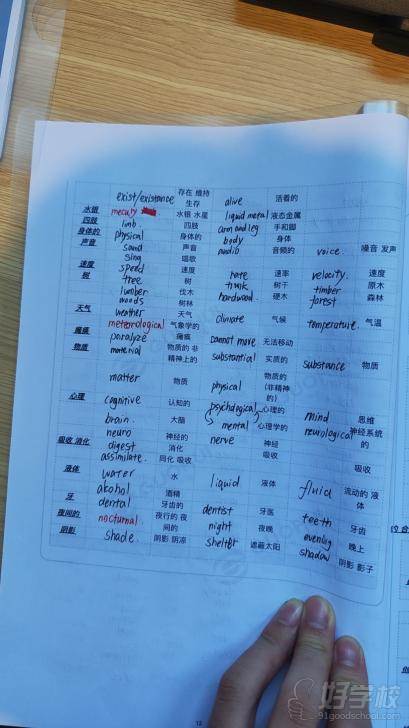 exist/existance 存在 维持 生存 alive 活着的
水银 mecury 水银 水星 liquid metal 液态金属
四肢 limb 四肢 arm and leg 手和脚
身体的 physical 身体的 body 身体
声音 sound 声音 audio 音频的 voice. 噪音 发声
sing 唱歌
速度 speed 速度 rate 速率 velocity. 速度
树 tree 树 trunk 树干 timber 原木
lumber 伐木 hardwood. 硬木 forest 森林
woods 树林
天气 weather 天气 climate 气候 temperature. 气温
meteorological 气象学的
瘫痪 paralyze 瘫痪 cannot move 无法移动
物质 material 物质的 非精神上的 substantial 实质的 substance 物质
matter 物质 physical 物质的(非精神的)
心理 cognitive 认知的 psychological 心理的 mind 思维
brain. 大脑 mental 心理学的 neurological 神经系统的
neuro 神经的 nerve 神经
吸收 消化 digest 消化 吸收 吸收
assimilate. 同化 吸收
液体 water 水 liquid 液体 fluid 流动的 液体
akohol 酒精
牙 dental 牙齿的 dentist 牙医 teeth 牙齿
夜间的 nocturnal 夜行的 夜间的 night 夜晚 evening 晚上
阴影 shade. 阴影 阴凉 shelter 遮蔽太阳 shadow 阴影 影子
12
好学校
91goodschool.com